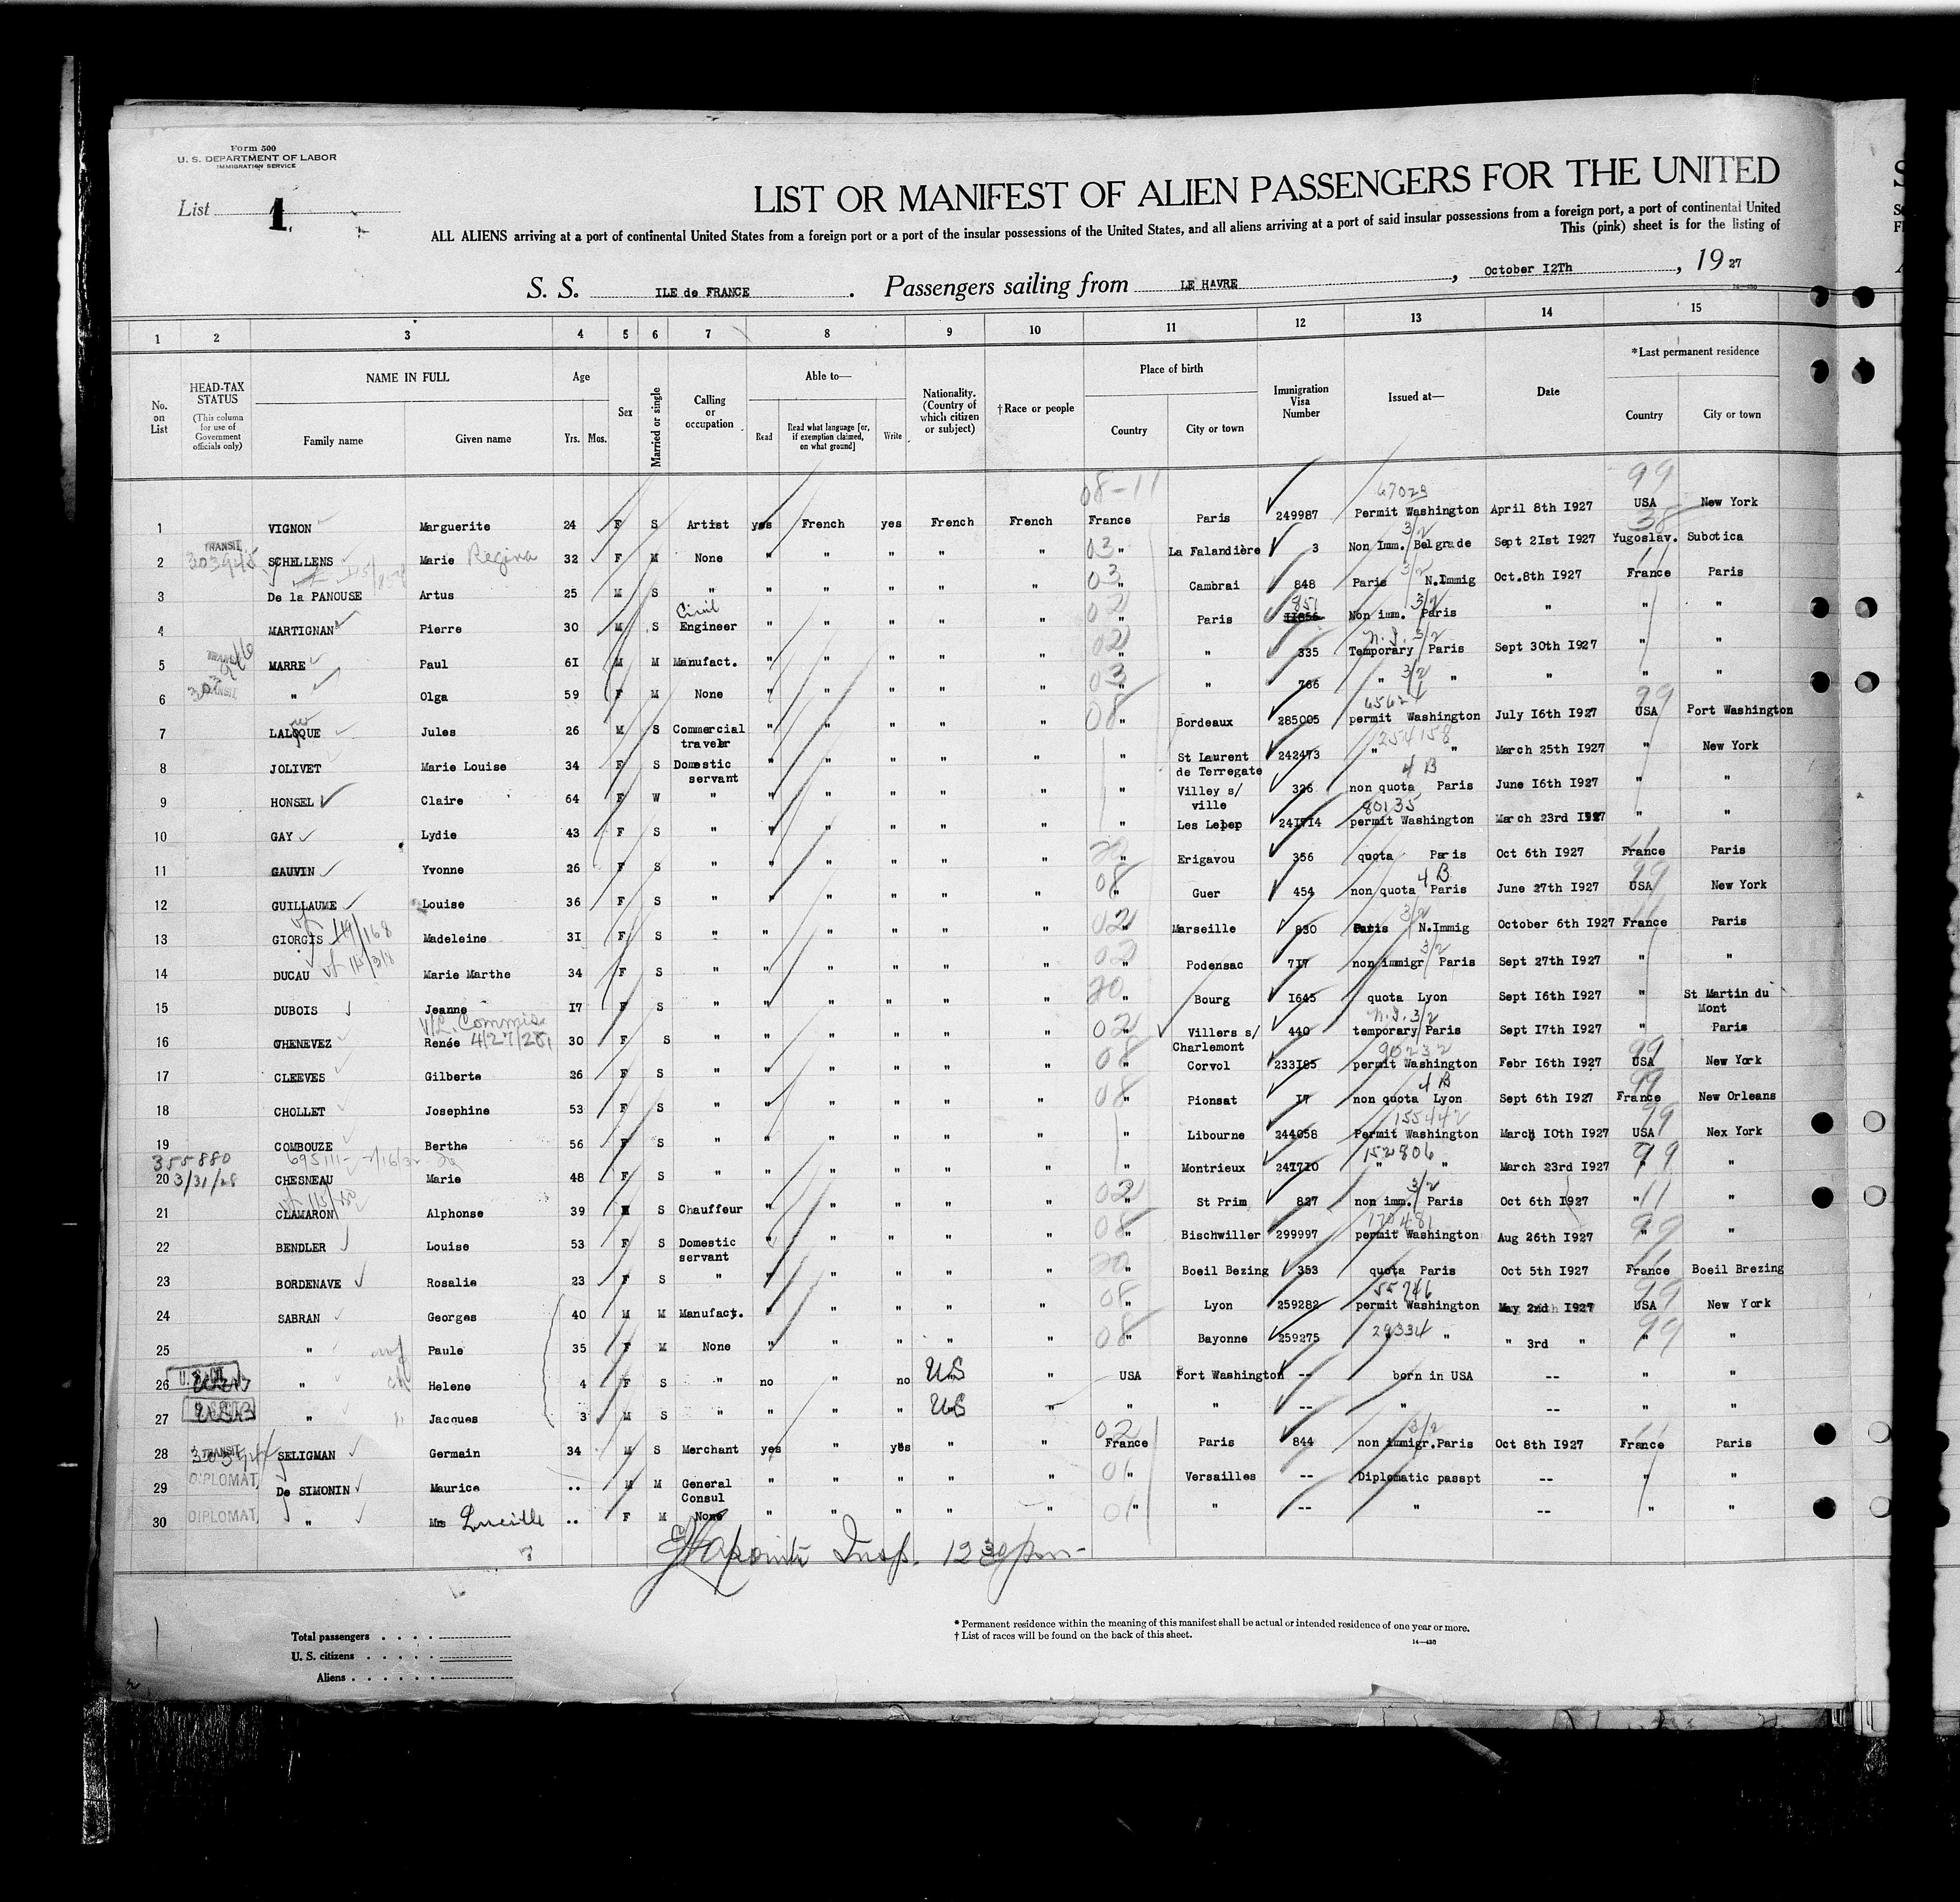 Form 500
U. S. DEPARTMENT OF LABOR
IMMIGRATION SERVICE
List 1
LIST OR MANIFEST OF ALIEN PASSENGERS FOR THE UNITED
ALL ALIENS arriving at a port of continental United States from a foreign port or a port of the insular possessions of the United States, and all aliens arriving at a port of said insular possessions from a foreign port, a port of continental United
This (pink) sheet is for the listing of
S. S. ILE de FRANCE. Passengers sailing from LE HAVRE, October I2Th, 19 27
1 2 3 4 5 6 7 8 9 10 11 12 13 14 15
No. on List
HEAD-TAX STATUS (This column for use of Government officials only)
NAME IN FULL Family name Given name
Age Yrs. Mos.
Sex
Married or single
Calling or occupation
Able to— Read Read what language [or, if exemption claimed, on what ground] Write
Nationality. (Country of which citizen or subject)
†Race or people
Place of birth Country City or town
Immigration Visa Number
Issued at—
Date
*Last permanent residence Country City or town
08-11 67029 99
1 VIGNON Marguerite 24 F S Artist yes French yes French French France Paris 249987 Permit Washington April 8th I927 USA New York
2 TRANSIT SCHELLENS Marie Regina 32 F M None " " " " " 03 " La Falandière 3 Non Imm. 3/2 Belgrade Sept 2Ist I927 38 Yugoslav. Subotica
3 De la PANOUSE Artus 25 M S " " " " " " 03 " Cambrai 848 Paris 3/2 N.Immig Oct.8th I927 France Paris
4 MARTIGNAN Pierre 30 M S Civil Engineer " " " " " 02 " Paris 851 Non imm. 3/2 Paris " " "
5 TRANSIT MARRE Paul 6I M M Manufact. " " " " " 02 " " 335 N.I. 3/2 Temporary Paris Sept 30th I927 " "
6 TRANSIT " Olga 59 F M None " " " " " 03 " " 766 " 3/2 " " " "
7 LALOQUE Jules 26 M S Commercial traveler " " " " " 08 " Bordeaux 285005 65624 permit Washington July I6th I927 99 USA Port Washington
8 JOLIVET Marie Louise 34 F S Domestic servant " " " " " " St Laurent de Terregate 242473 254158 " " March 25th I927 " New York
9 HONSEL Claire 64 F W " " " " " " " Villey s/ ville 326 4 B non quota Paris June I6th I927 " "
10 GAY Lydie 43 F S " " " " " " " Les Leper 24I7I4 80135 permit Washington March 23rd I927 " "
11 GAUVIN Yvonne 26 F S " " " " " " 20 " Erigavou 356 quota Paris Oct 6th I927 France Paris
12 GUILLAUME Louise 36 F S " " " " " " 08 " Guer 454 4 B non quota Paris June 27th I927 99 USA New York
13 GIORGIS Madeleine 3I F S " " " " " " 02 " Marseille 830 Paris 3/2 N.Immig October 6th I927 France Paris
14 DUCAU Marie Marthe 34 F S " " " " " " 02 " Podensac 7I7 non immigr 3/2 Paris Sept 27th I927 " "
15 DUBOIS Jeanne I7 F S " " " " " " 20 " Bourg I645 quota Lyon Sept I6th I927 " St Martin du Mont
16 CHENEVEZ Renée 30 F S " " " " " " 02 " Villers s/ Charlemont 440 N.I. 3/2 temporary Paris Sept I7th I927 " Paris
17 CLEEVES Gilberte 26 F S " " " " " " 08 " Corvol 233I85 90232 permit Washington Febr I6th I927 99 USA New York
18 CHOLLET Josephine 53 F S " " " " " " 08 " Pionsat I7 4 B non quota Lyon Sept 6th I927 99 France New Orleans
19 COMBOUZE Berthe 56 F S " " " " " " " Libourne 244058 155442 Permit Washington March I0th I927 99 USA Nex York
355880
20 3/31/28 CHESNEAU Marie 48 F S " " " " " " " Montrieux 24I7I0 152806 " " March 23rd I927 99 "
21 CLAMARON Alphonse 39 M S Chauffeur " " " " " 02 " St Prim 827 non imm. 3/2 Paris Oct 6th I927 " 11 "
22 BENDLER Louise 53 F S Domestic servant " " " " " 08 " Bischwiller 299997 170481 permit Washington Aug 26th I927 99 " "
23 BORDENAVE Rosalie 23 F S " " " " " " 20 " Boeil Bezing 353 quota Paris Oct 5th I927 France Boeil Brezing
24 SABRAN Georges 40 M M Manufact. " " " " " 08 " Lyon 259282 55746 permit Washington May 2nd I927 99 USA New York
25 " Paule 35 F M None " " " " " 08 " Bayonne 259275 29334 " " 3rd " 99 " "
26 " Helene 4 F S " no " no US " USA Port Washington -- born in USA -- " "
27 " Jacques 3 M S " " " " US " " " -- " -- " "
28 TRANSIT SELIGMAN Germain 34 M S Merchant yes " yes " " 02 France Paris 844 non immigr. 3/2 Paris Oct 8th I927 France Paris
29 DIPLOMAT De SIMONIN Maurice .. M M General Consul " " " " " 01 " Versailles -- Diplomatic passpt -- " "
30 DIPLOMAT " Mrs Lucille .. F M None " " " " " 01 " " -- " -- " "
Insp. 12 30 pm
Total passengers
U. S. citizens
Aliens
* Permanent residence within the meaning of this manifest shall be actual or intended residence of one year or more.
† List of races will be found on the back of this sheet.
14—430